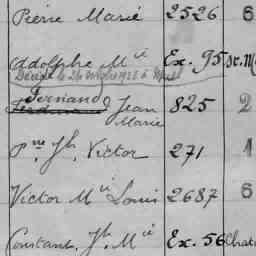 Pierre Marie 2526 6
Adolphe Mie Ex. 95 St. M
Décédé le 24 1928 à
Fernand
Jean 825 2
Marie
Pre Jh. Victor 271 1
Victor Mie Louis 2687 6
Constant Jh. Mie Ex. 56 Chat